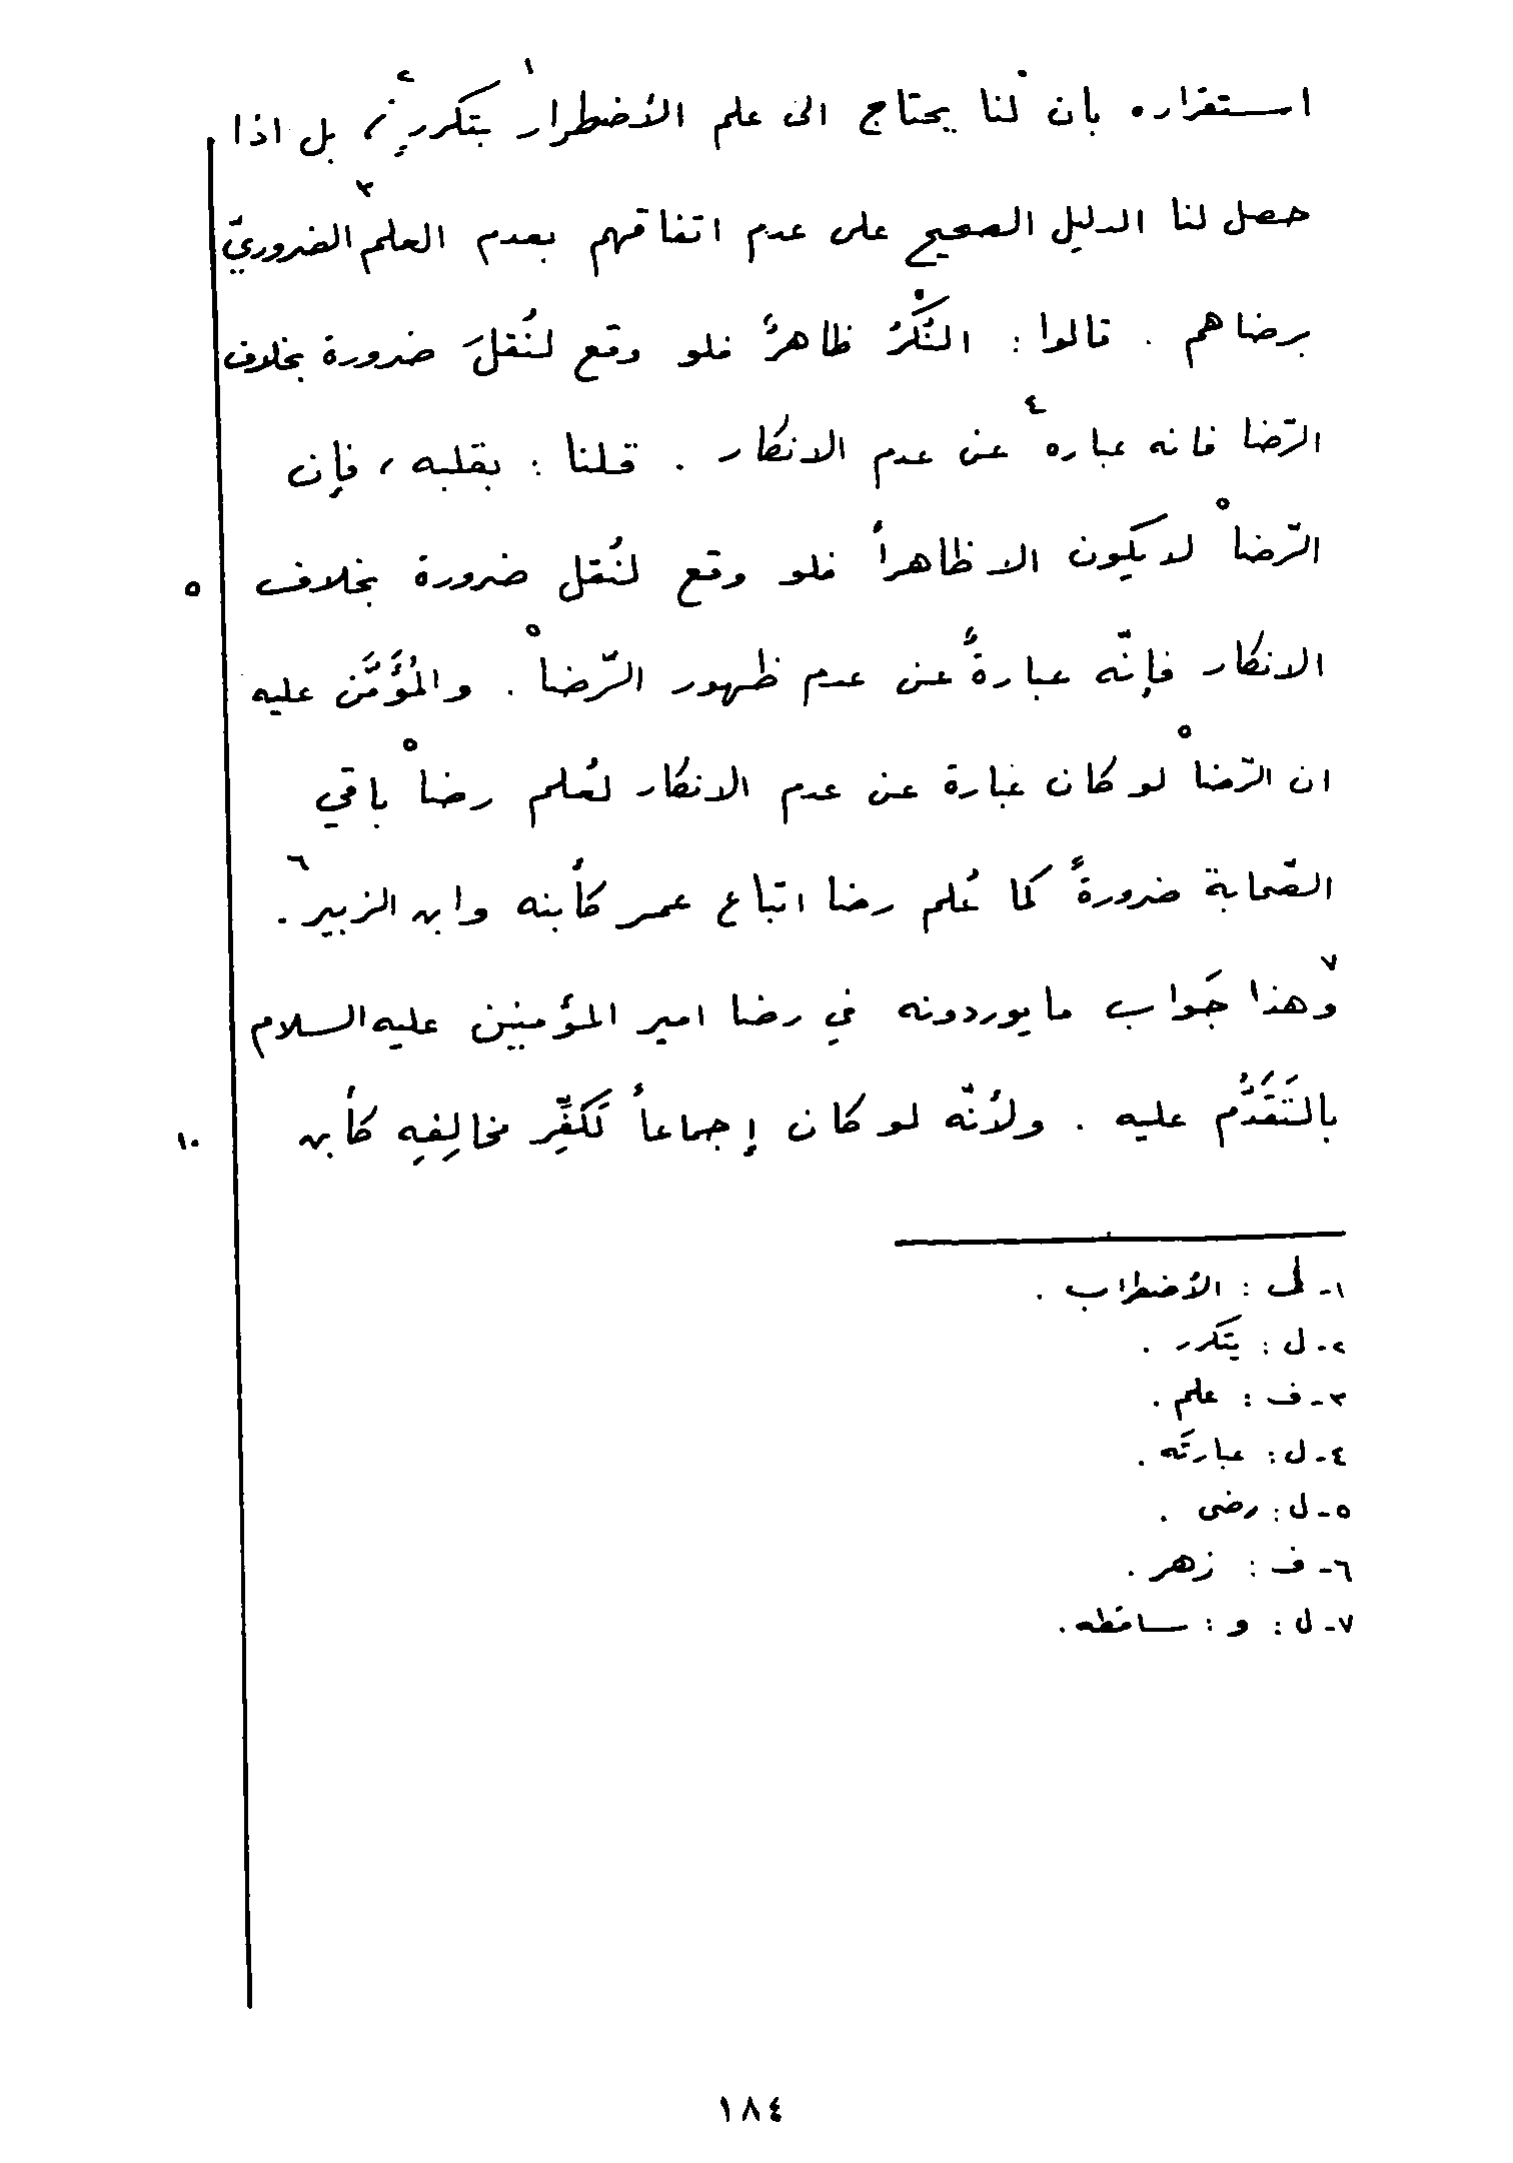 استقراره بان لنا يحتاج الى علم الأضطرار١ بتكرر٢ٍ، بل اذا
حصل لنا الدليل الصحيح على عدم اتفاقهم بعدم العلم٣ الضروريّ
برضاهم . قالوا : النُكْرُ ظاهرٌ فلو وقع لنُقلَ ضرورة بخلاف
الرّضا فانه عباره٤ عن عدم الانكار . قلنا : بقلبه ، فإن
الرّضا٥ لا يكون الا ظاهراً فلو وقع لنُقل ضرورة بخلاف
٥
الانكار فإنّه عبارةٌ عن عدم ظهور الرّضا٥ . والمُؤَمَّن عليه
ان الرّضا٥ لو كان عبارة عن عدم الانكار لعُلم رضا٥ باقي
الصّحابة ضرورةً كما عُلم رضا اتباع عمر كأبنه وابن الزبير٦ .
٧وهذا جَواب ما يوردونه في رضا امير المؤمنين عليه السلام
بالتَقَدُّم عليه . ولأنّه لو كان إجماعاً لَكَفِّر مخالِفِهِ كأبن
١٠
١- لى : الأضطراب .
٢- ل : يتكرر .
٣- ف : علم .
٤- ل : عبارتَه .
٥- ل : رضى .
٦- ف : زهر .
٧- ل : و : ساقطه .
١٨٤